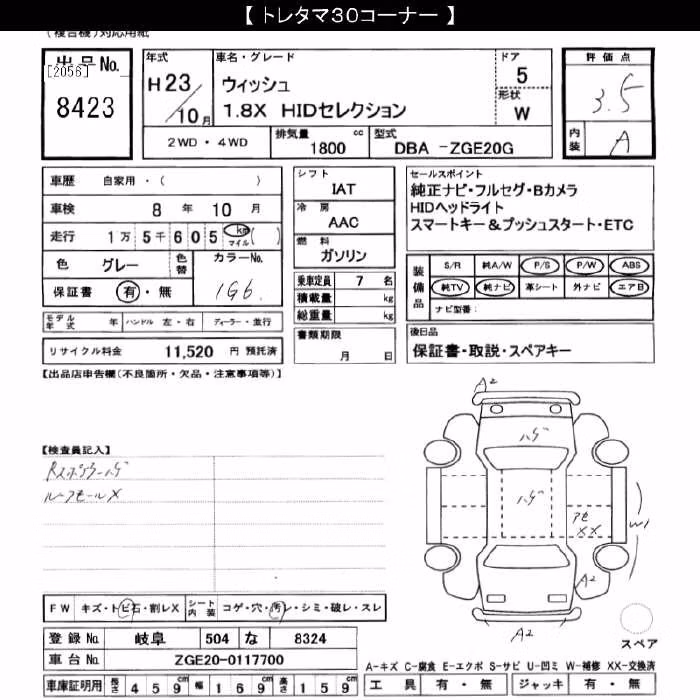 【 トレタマ30コーナー 】
(複合機)対応用紙
出品No.
[2056]
8423
年式
H23/10月
車名・グレード
ウィッシュ
1.8X HIDセレクション
ドア
5
形状
W
評価点
3.5
内装
A
2WD・4WD
排気量
1800 cc
型式
DBA -ZGE20G
車歴 自家用・( )
車検 8年 10月
走行 1万 5千 6 0 5 km マイル ( )
色 グレー
色替
カラーNo.
1G6
保証書 有・無
モデル年式 年 ハンドル 左・右 ディーラー・並行
リサイクル料金 11,520 円 預託済
シフト
IAT
冷房
AAC
燃料
ガソリン
乗車定員 7 名
積載量 kg
総重量 kg
書類期限
月 日
セールスポイント
純正ナビ・フルセグ・Bカメラ
HIDヘッドライト
スマートキー&プッシュスタート・ETC
装備品
S/R 純A/W P/S P/W ABS
純TV 純ナビ 革シート 外ナビ エアB
ナビ型番:
後日品
保証書・取説・スペアキー
【出品店申告欄(不良箇所・欠品・注意事項等)】
【検査員記入】
Rスポイラーハゲ
ルーフモールX
A2
ハゲ
ハゲ
アセ
XX
W1
A2
A2
スペア
FW キズ・トビ石・割レX
シート内装 コゲ・穴・汚レ・シミ・破レ・スレ
登録No. 岐阜 504 な 8324
車台No. ZGE20-0117700
車庫証明用 長さ 4 5 9 cm 幅 1 6 9 cm 高さ 1 5 9 cm
A-キズ C-腐食 E-エクボ S-サビ U-凹ミ W-補修 XX-交換済
工具 有・無 ジャッキ 有・無